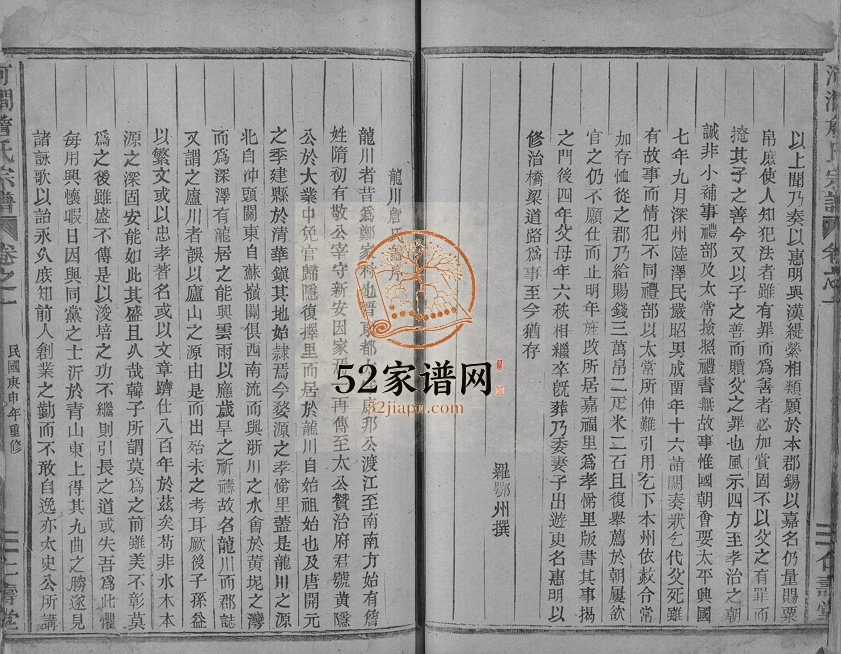 以上聞乃奏以惠明與漢緹縈相類願於本郡錫以嘉名仍量賜粟
帛庶使人知犯法者雖有罪而爲善者必加賞固不以父之有罪而
掩其子之善今又以子之善而贖父之罪也風示四方至孝治之朝
誠非小補事禮部及太常撿照禮書無故事惟國朝會要太平興國
七年九月深州陸澤民嚴昭男成酉年十六請闕奏狀乞代父死雖
有故事而情犯不同禮部以太常所伸難引用乞下本州依赦合常
加存恤從之郡乃給賜錢三萬帛二疋米二石且復舉薦於朝屢欲
官之仍不願仕而止明年旌改所居嘉福里爲孝悌里版書其事揭
之門後四年父母年六秩相繼卒旣葬乃委妻子出遊更名惠明以
修治橋梁道路爲事至今猶存
羅鄂州撰
龍川詹氏
龍川者昔爲鄭家村也晉東都 康邦公渡江至南南方始有詹
姓隋初有敬公宰守新安因家焉 再傳至太公贊治府君號黃隱
公於大業中免官歸隱復擇里而居於龍川自始祖始也及唐開元
之季建縣於清華鎭其地始隸焉今婺源之孝悌里蓋是龍川之源
北自沖頭關東自蘇嶺關俱西南流而與浙川之水會於黃坭之灣
而爲深澤有龍居之能興雲雨以應歲旱之祈禱故名龍川而郡誌
又謂之廬川者誤以廬山之源由是而出殆未之考耳厥後子孫益
以繁文或以忠孝著名或以文章躋仕八百年於茲矣苟非水木本
源之深固安能如此其盛且久哉韓子所謂莫爲之前雖美不彰莫
爲之後雖盛不傳是以浚培之功不繼則引長之道或失吾爲此懼
每用興懷暇日因與同黨之士沂於青山東上得其九曲之勝遂見
諸詠歌以詒永久庶知前人創業之勤而不敢自逸亦太史公所講
河間詹氏宗譜
卷之一
民國庚申年重修
一
仁壽堂
52家谱网
52jiapu.com